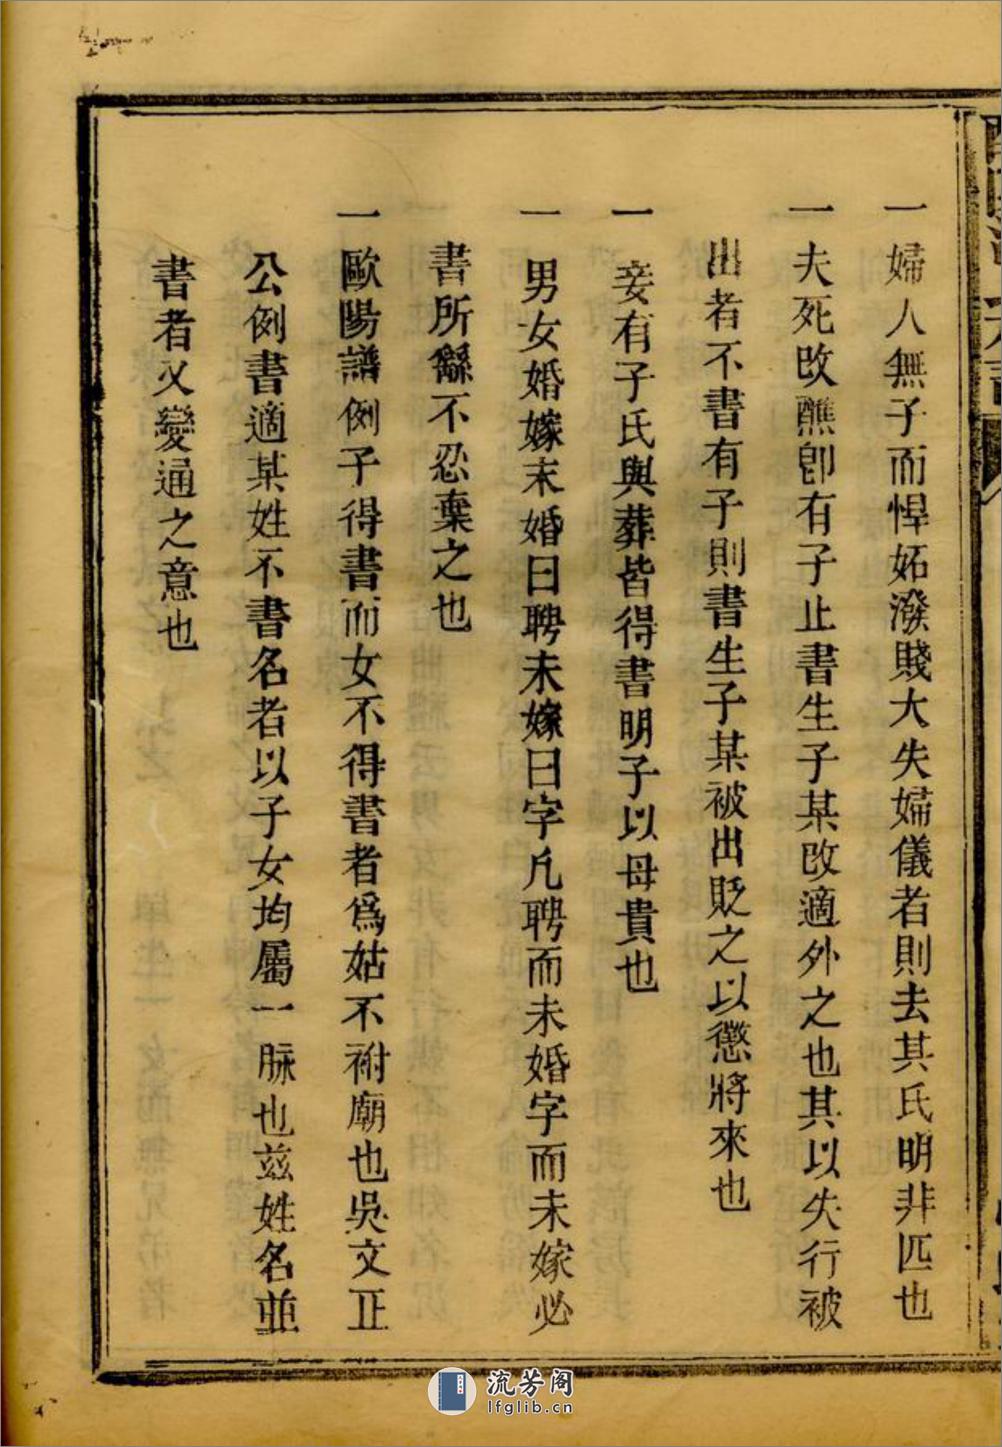 一婦人無子而悍妬潑賤大失婦儀者則去其氏明非匹也
一夫死改醮卽有子止書生子某改適外之也其以失行被
出者不書有子則書生子某被出貶之以懲將來也
一妾有子氏與葬皆得書明子以母貴也
一男女婚嫁末婚曰聘未嫁曰字凡聘而未婚字而未嫁必
書所繇不忍棄之也
一歐陽譜例子得書而女不得書者爲姑不祔廟也吳文正
公例書適某姓不書名者以子女均屬一脉也茲姓名並
書者又變通之意也
流芳阁
lfglib.cn